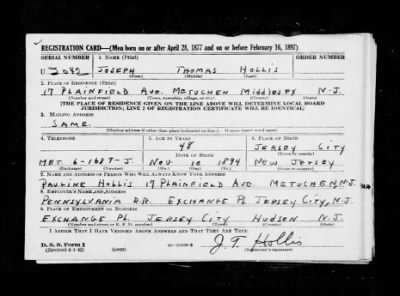 REGISTRATION CARD—(Men born on or after April 28, 1877 and on or before February 16, 1897)
SERIAL NUMBER 1. NAME (Print) ORDER NUMBER
U 3092 JOSEPH THOMAS HOLLIS
(First) (Middle) (Last)
2. PLACE OF RESIDENCE (Print)
17 PLAINFIELD AVE. METUCHEN MIDDLESEX N.J.
(Number and street) (Town, township, village, or city) (County) (State)
[THE PLACE OF RESIDENCE GIVEN ON THE LINE ABOVE WILL DETERMINE LOCAL BOARD
JURISDICTION; LINE 2 OF REGISTRATION CERTIFICATE WILL BE IDENTICAL]
3. MAILING ADDRESS
SAME
[Mailing address if other than place indicated on line 2. If same insert word same]
4. TELEPHONE 5. AGE IN YEARS 6. PLACE OF BIRTH
48 JERSEY CITY
DATE OF BIRTH (Town or county)
MET 6-1687-J. NOV. 10 1894 NEW JERSEY
(Exchange) (Number) (Mo.) (Day) (Yr.) (State or country)
7. NAME AND ADDRESS OF PERSON WHO WILL ALWAYS KNOW YOUR ADDRESS
PAULINE HOLLIS 17 PLAINFIELD AVE. METUCHEN, N.J.
8. EMPLOYER'S NAME AND ADDRESS
PENNSYLVANIA R.R. EXCHANGE PL JERSEY CITY, N.J.
9. PLACE OF EMPLOYMENT OR BUSINESS
EXCHANGE PL. JERSEY CITY HUDSON N.J.
(Number and street or R. F. D. number) (Town) (County) (State)
I AFFIRM THAT I HAVE VERIFIED ABOVE ANSWERS AND THAT THEY ARE TRUE.
D. S. S. Form 1
(Revised 4-1-42) J. T. Hollis
(Registrant's signature)